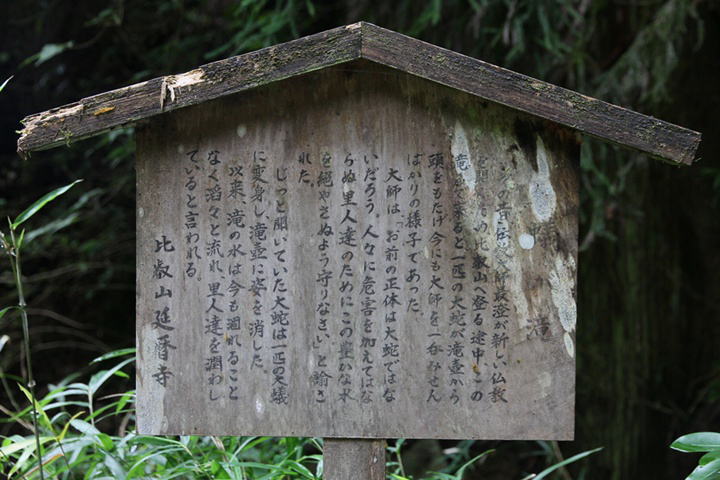 蟻ヶ滝
その昔、伝教大師最澄が新しい仏教
を開くため比叡山へ登る途中、この
滝まで来ると一匹の大蛇が滝壺から
頭をもたげ今にも大師を一呑みせん
ばかりの様子であった。
大師は、「お前の正体は大蛇ではな
いだろう、人々に危害を加えてはな
らぬ里人達のためにこの豊かな水
を絶やさぬよう守りなさい」と諭さ
れた。
じっと聞いていた大蛇は一匹の大蟻
に変身し、滝壺に姿を消した。
以来、滝の水は今も涸れること
なく滔々と流れ、里人達を潤わし
ていると言われる。
比叡山延暦寺